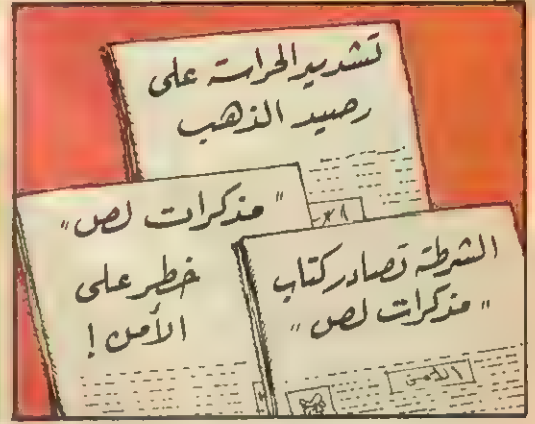 تشديد الحراسة على
رصيد الذهب
"مذكرات لص"
خطر على
الأمن!
الشرطة تصادر كتاب
"مذكرات لص"